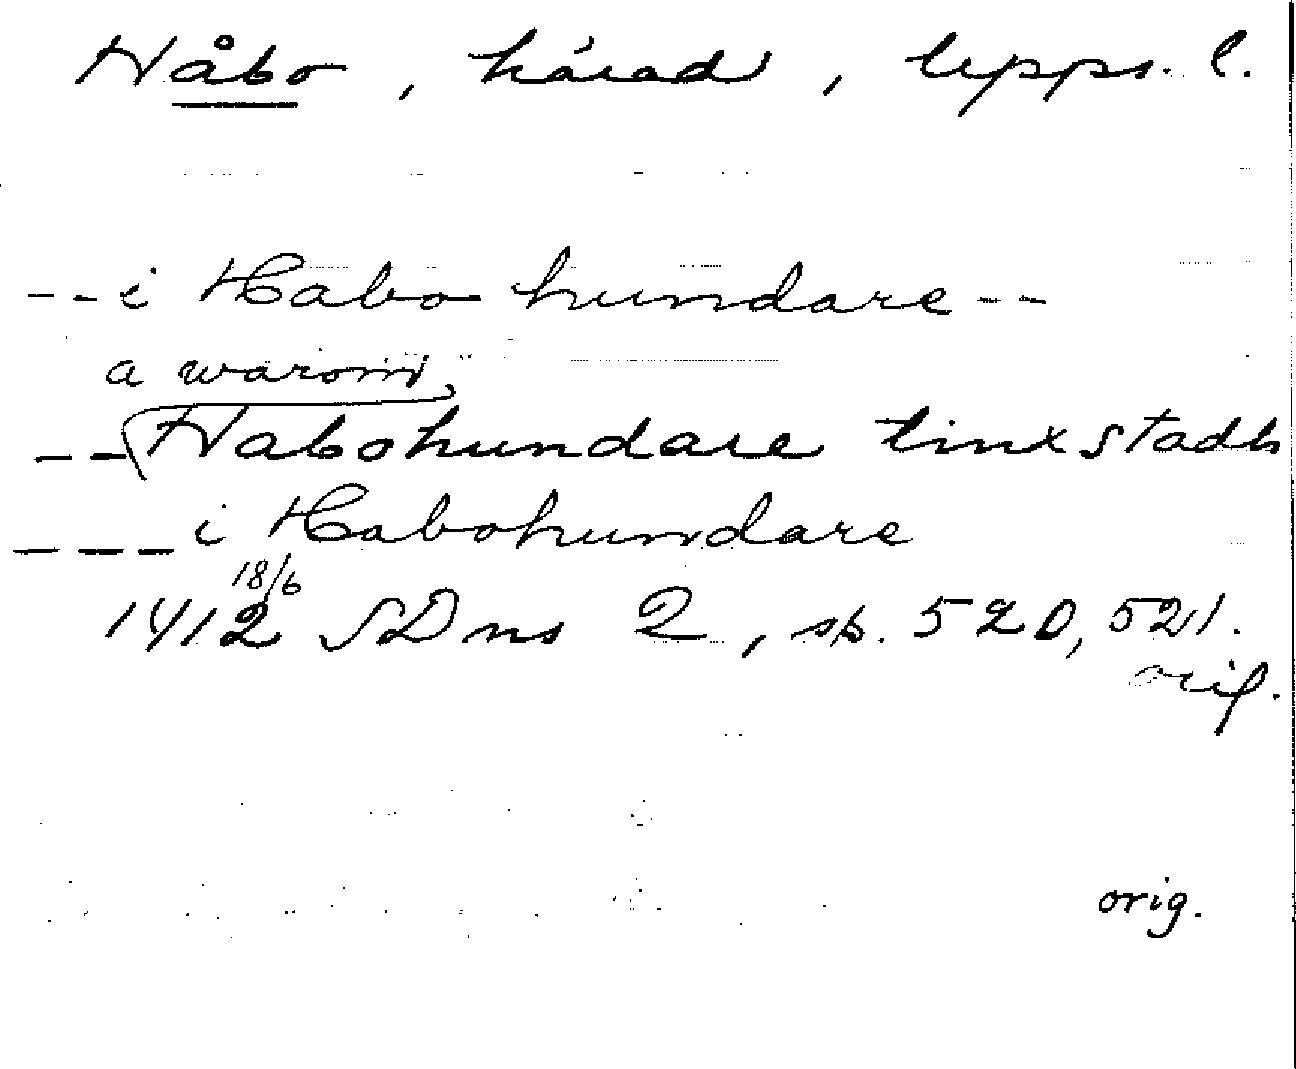 Håbo, härad, Upps. l.
--i Habo hundare--
a warom
--Habohundare tinxstadh
---i Habohundare
18/6
1412 SDns 2, sp. 520, 521.
orig.
orig.